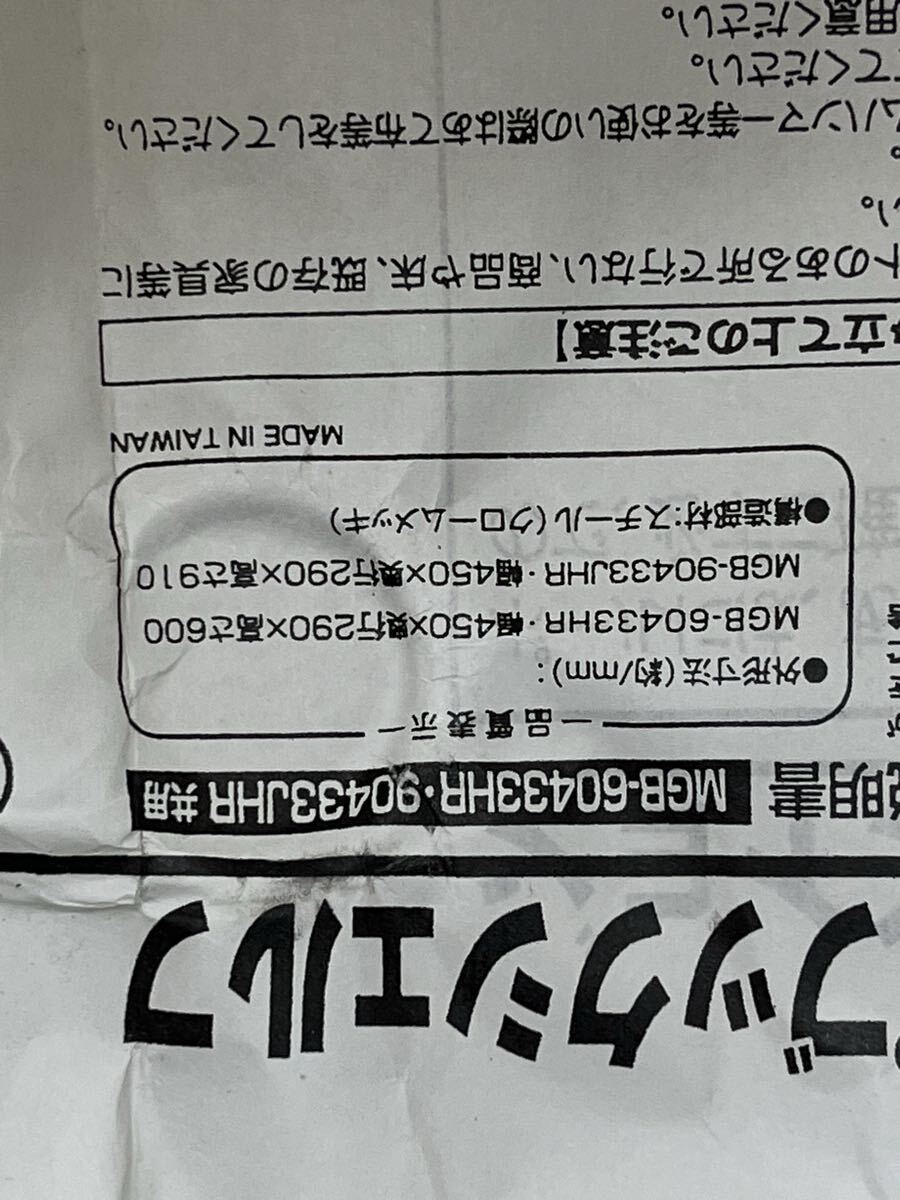 ブックシェルフ
説明書 MGB-60433HR・90433JHR 共用
品質表示
●外形寸法(約/mm):
MGB-60433HR・幅450×奥行290×高さ600
MGB-90433JHR・幅450×奥行290×高さ910
●構造部材:スチール(クロームメッキ)
MADE IN TAIWAN
立て上のご注意】
トのある所で行ない、商品や床、既存の家具等に
い。
。
ムハンマー等をお使いの際はあて布等をしてください。
てください。
用意ください。